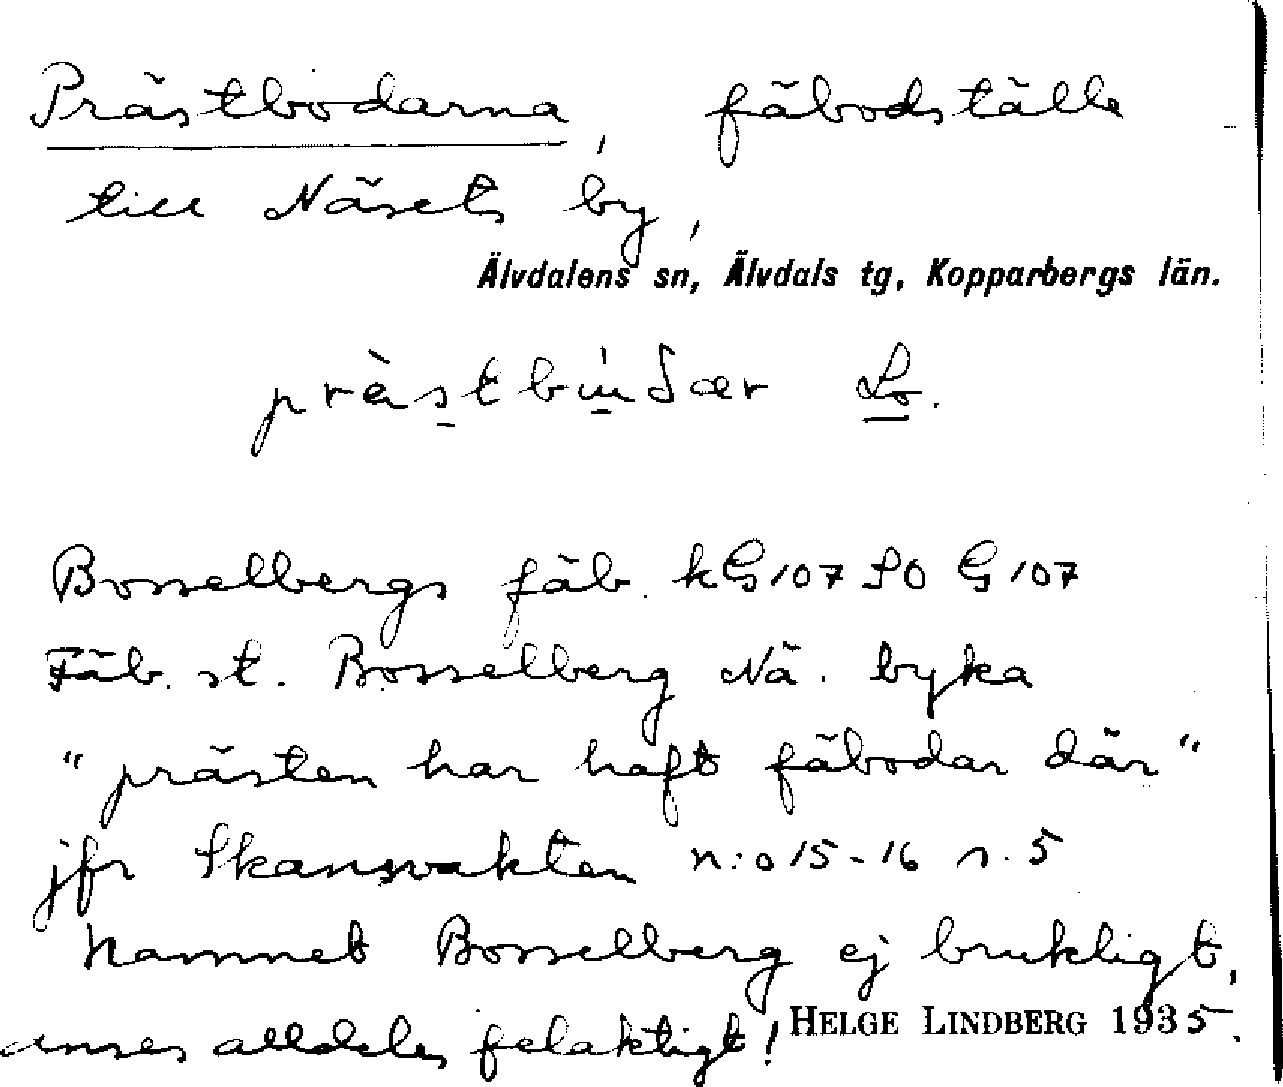 Prästbodarna, fäbodställe
till Näsets by,
Älvdalens sn, Älvdals tg, Kopparbergs län.
Lo.
Bosselbergs fäb. kG107 SO G107
Fäb. st. Bosselberg Nä. byka
"prästen har haft fäbodar där"
jfr Skansvakten n:o 15-16 s. 5
Namnet Bosselberg ej brukligt,
anses alldeles felaktigt!
HELGE LINDBERG 1935.